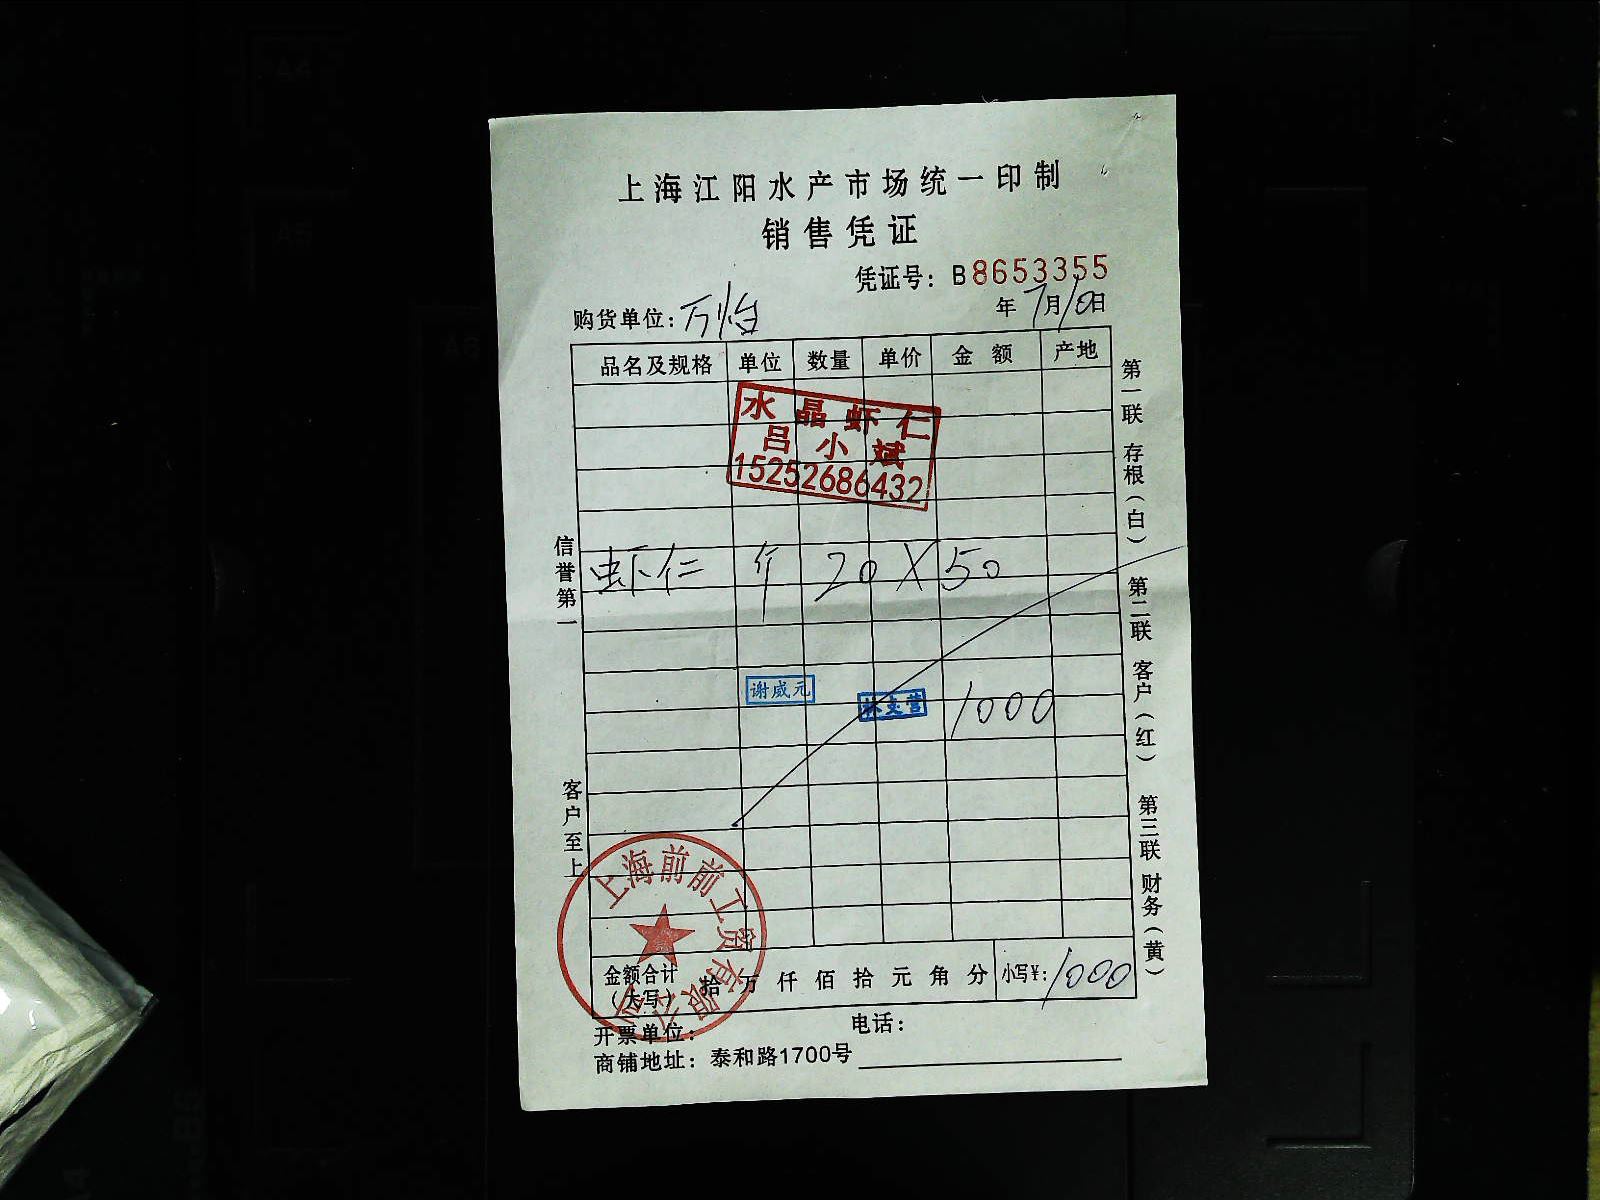 上海江阳水产市场统一印制
销售凭证
凭证号：B8653355
购货单位：万怡 年7月10日
品名及规格 单位 数量 单价 金额 产地
水晶虾仁
吕小斌
15252686432
虾仁 斤 20 X 50
谢威元
1000
信誉第一
客户至上
第一联 存根（白）
第二联 客户（红）
第三联 财务（黄）
上海前前工贸有限公司
金额合计（大写） 拾万仟佰拾元角分 小写¥：1000
开票单位： 电话：
商铺地址：泰和路1700号